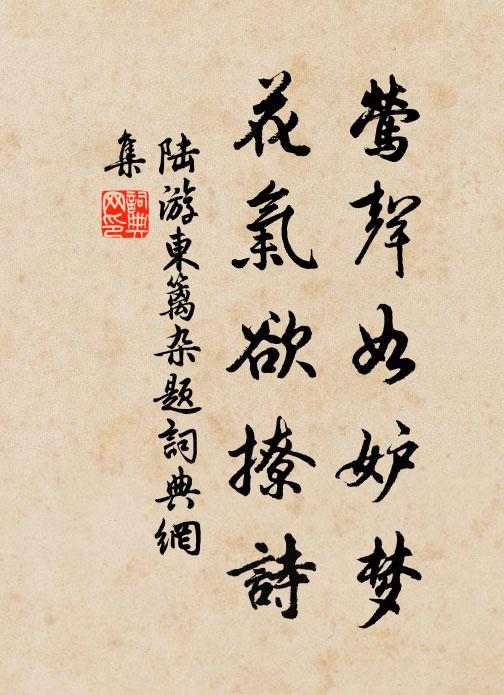 鶯聲如妒梦
花氣欲撩詩
陸游東籬杂题詞典網
集
詞典网印